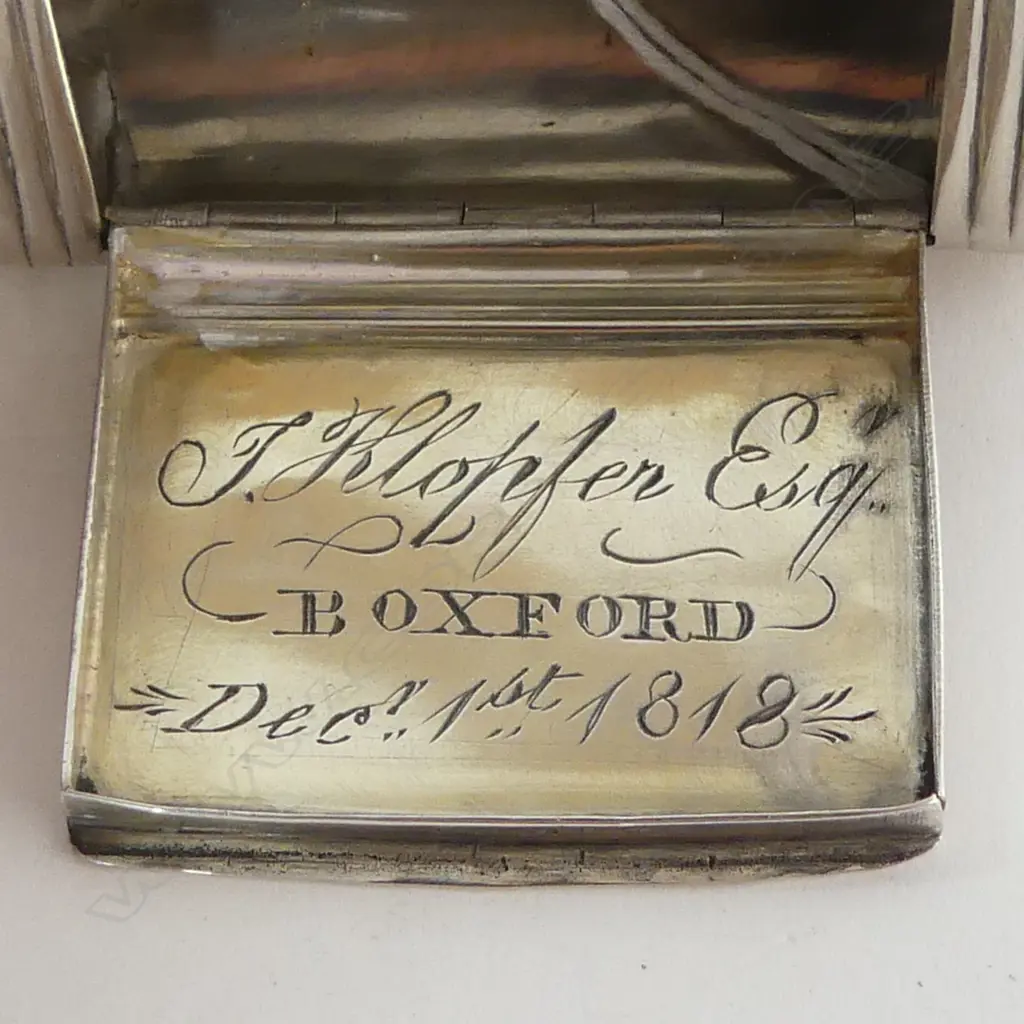 T. Klopfer Esqr.
BOXFORD
Decr. 1st. 1818